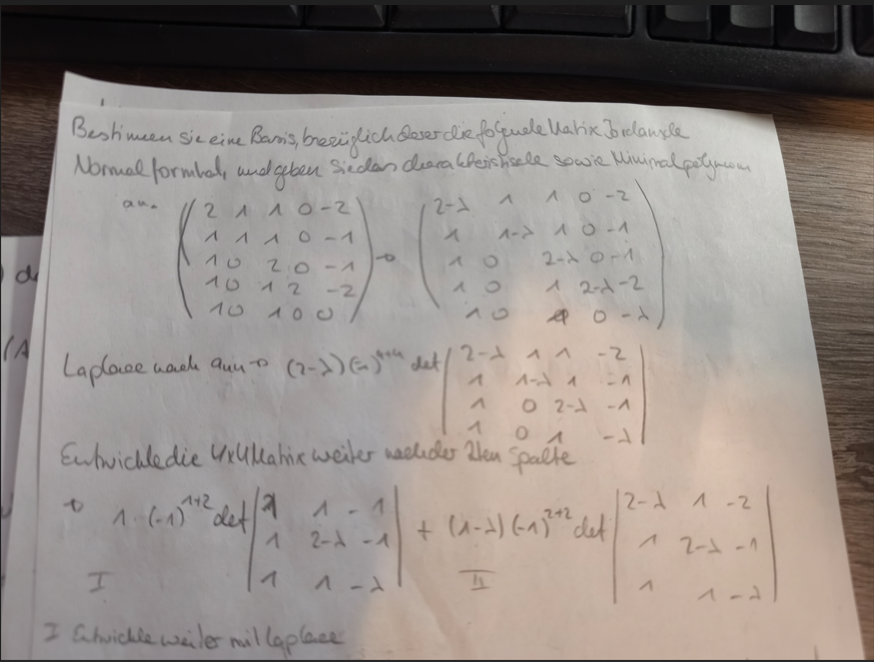 Bestimmen sie eine Basis, bezüglich derer die folgende Matrix Jordansche
Normalform hat, und geben Sie das charakteristische sowie Minimalpolynom
an.
( 2 1 1 0 -2 ) ( 2-λ 1 1 0 -2 )
( 1 1 1 0 -1 ) ( 1 1-λ 1 0 -1 )
( 1 0 2 0 -1 ) → ( 1 0 2-λ 0 -1 )
( 1 0 1 2 -2 ) ( 1 0 1 2-λ -2 )
( 1 0 1 0 0 ) ( 1 0 1 0 -λ )
Laplace nach a₄₄ → (2-λ)(-1)⁴⁺⁴ det | 2-λ 1 1 -2 |
| 1 1-λ 1 -1 |
| 1 0 2-λ -1 |
| 1 0 1 -λ |
Entwickle die 4x4 Matrix weiter nach der 2ten Spalte
→ 1·(-1)¹⁺² det | 1 1 -1 | + (1-λ)(-1)²⁺² det | 2-λ 1 -2 |
| 1 2-λ -1 | | 1 2-λ -1 |
I | 1 1 -λ | II | 1 1 -λ |
I Entwickle weiter mit Laplace